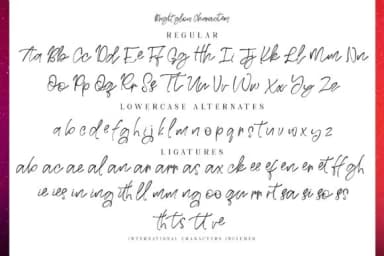 Brightglow Characters
REGULAR
Aa Bb Cc Dd Ee Ff Gg Hh Ii Jj Kk Ll Mm Nn
Oo Pp Qq Rr Ss Tt Uu Vv Ww Xx Yy Zz
LOWERCASE ALTERNATES
a b c d e f g h i j k l m n o p q r s t u v w x y z
LIGATURES
ab ac ae al an ar arr as ax ck ee ef en er et ff gh
ie ies in ing ith ll mm ng oo qu rr rt sa si so ss
th ts tt ve
INTERNATIONAL CHARACTERS INCLUDED